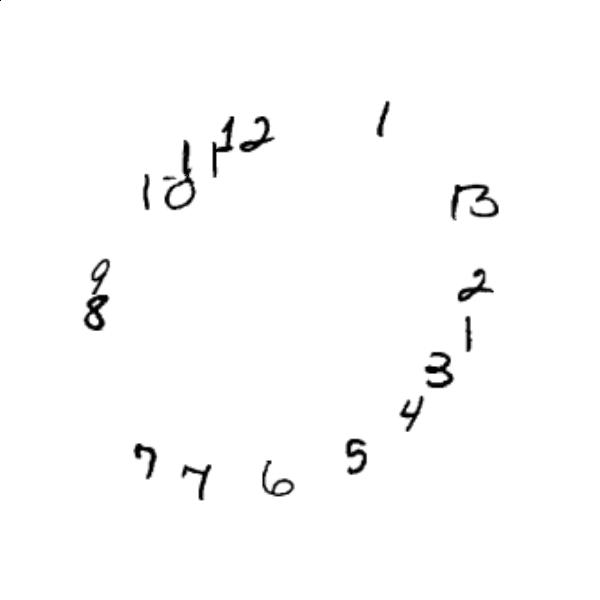 12
1
13
2
1
3
4
5
6
7
7
8
9
10
11